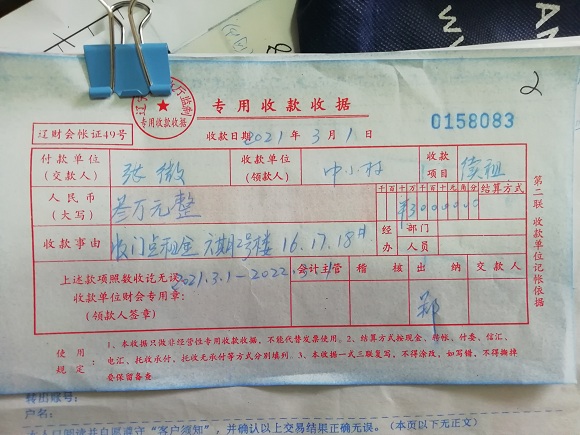 2
专用收款收据
收款日期2021年3月1日
0158083
辽财会帐证49号
厅监制
专用收款收据
付款单位(交款人) 张微 收款单位(领款人) 中小村 收款项目 续租
人民币(大写) 叁万元整 千百十万千百十元角分 结算方式
¥3000000
收款事由 门点租金 六期2号楼 16.17.18# 经办 部门 人员
上述款项照数收讫无误 2021.3.1-2022.3.1
收款单位财会专用章:
(领款人签章)
会计主管 稽核 出纳 交款人
郑
第二联 收款单位记帐依据
使用规定: 1、本收据只做非经营性专用收款收据,不能代替发票使用。2、结算方式按现金、转帐、付委、信汇、
电汇、托收承付、托收无承付等方式分别填列。3、本收据一式三联复写,不得涂改,如写错,不得撕掉
要保留备查
转出账号:
户名:
”,并确认以上交易结果正确无误。(本页以下无正文)